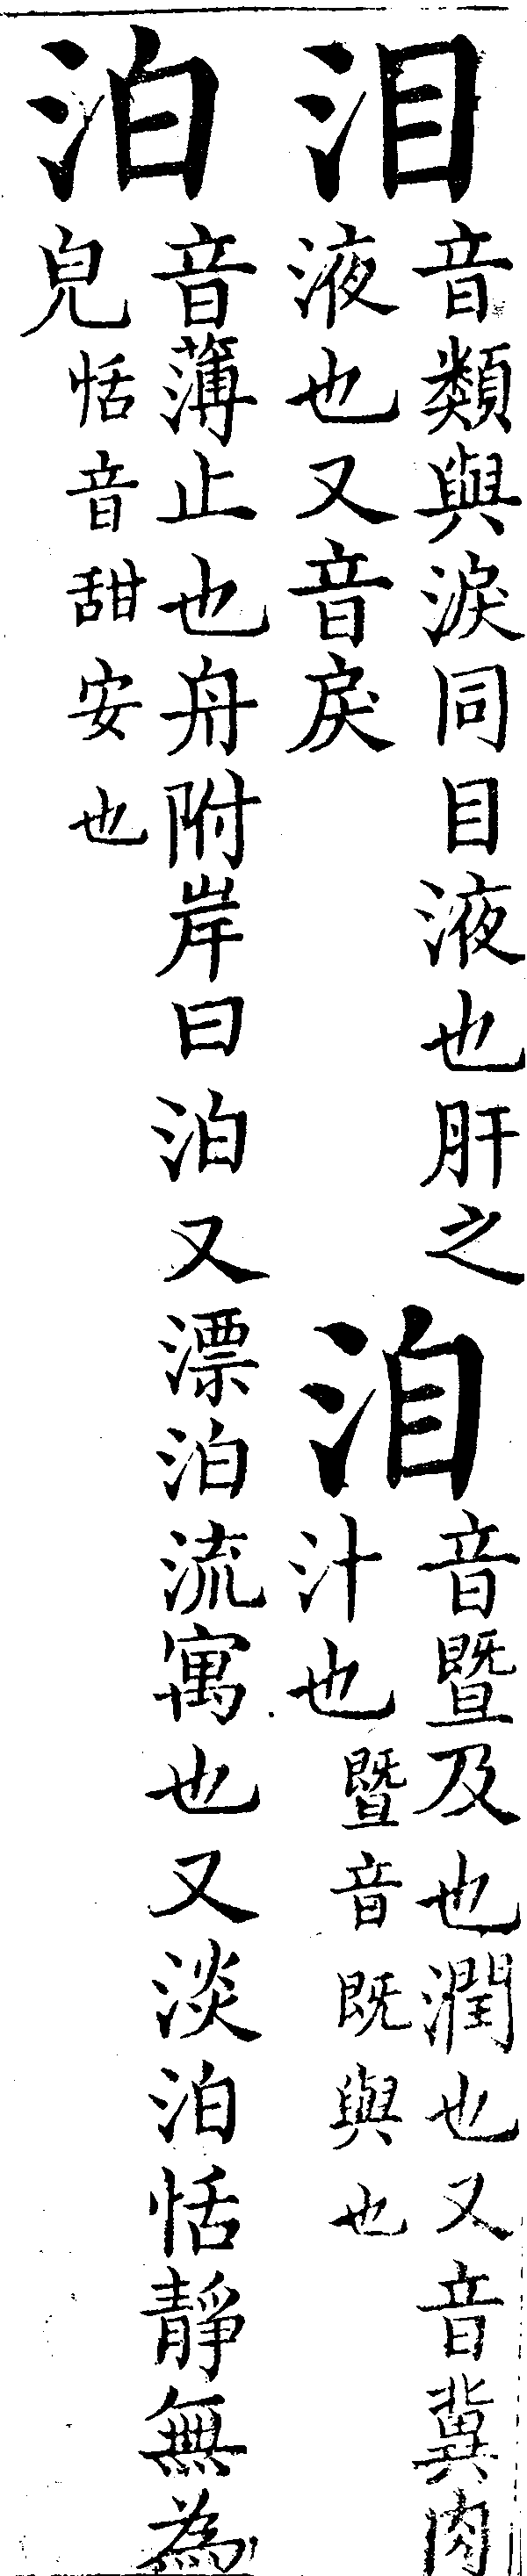 泪
音類與淚同目液也肝之
液也又音戾
洎
音暨及也潤也又音冀肉
汁也
暨音既與也
泊
音薄止也舟附岸曰泊又漂泊流寓也又淡泊恬靜無為
皃
恬音甜安也